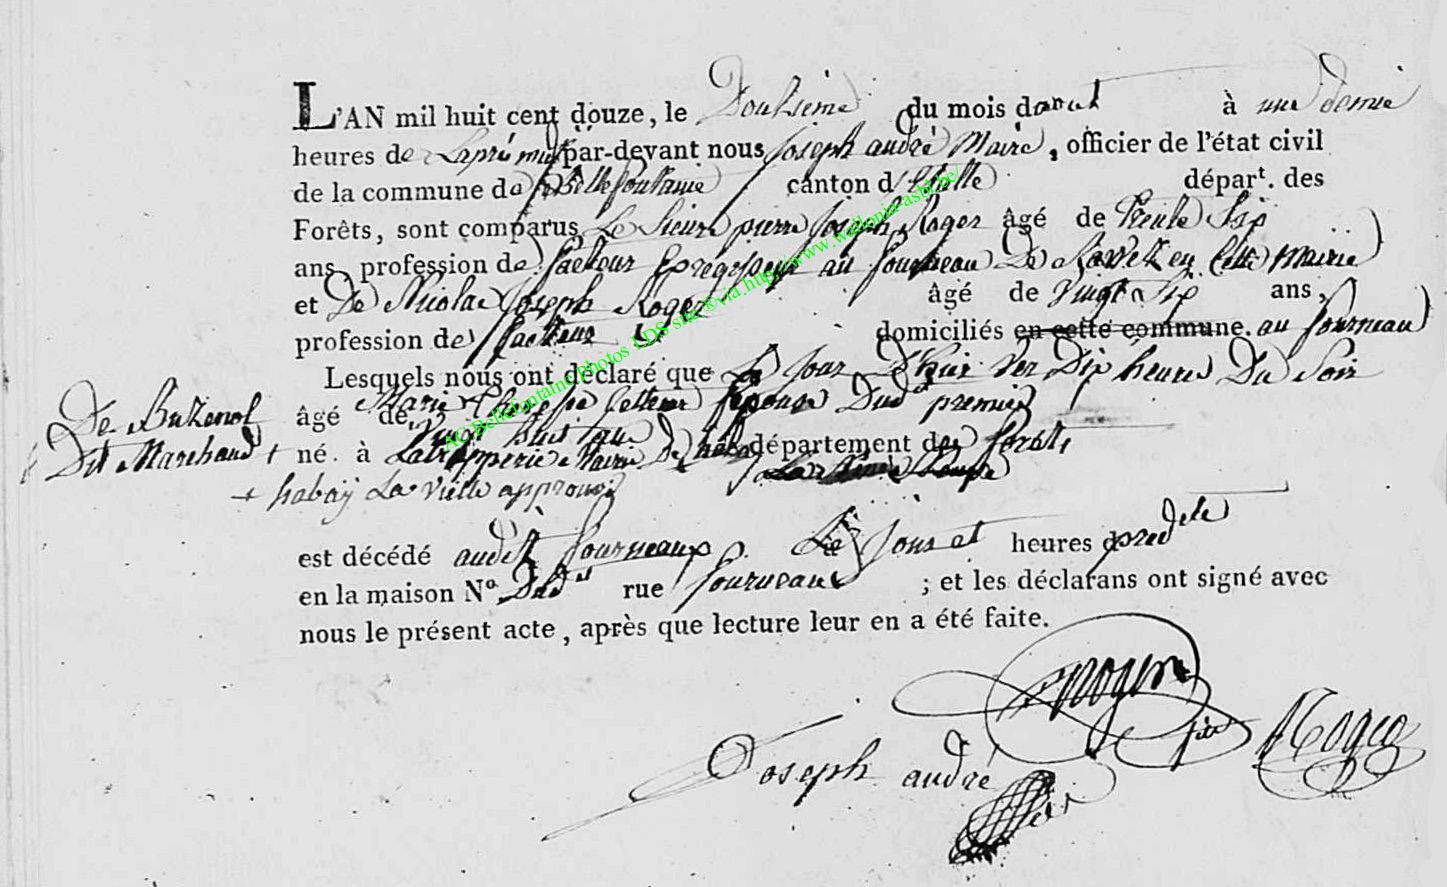 L'AN mil huit cent douze, le Doutsieme du mois daout à une demie
heures de Laprè midy par-devant nous Joseph andrè Maire, officier de l'état civil
de la commune de Bellefontaine canton d'Etalle départ. des
Forêts, sont comparus Le Sieur pierre Joseph Roger âgé de trente Six
ans profession de facteur au fourneau De en Cette Mairie
et De Nicolas Joseph Roger âgé de vingt Six ans,
profession de facteur domiciliés en cette commune. au fourneau
De Buzenol
Dit Marchand +
Lesquels nous ont déclaré que Le Jour D'huir Dix heures Du Soir
Marie Therese Epouse Dud premier
âgé de vingt huit ans
né. à Latrapperie Mairie De département des forets
+ habaÿ La vielle approuvé
est décédé audit fourneaux Le Jour et heures predete
en la maison Nº Dud rue fourneau ; et les déclarans ont signé avec
nous le présent acte, après que lecture leur en a été faite.
Roger
Joseph andrè
AC Bellefontaine Photos LDS site@via.http://www.wallonia-asbl.be/